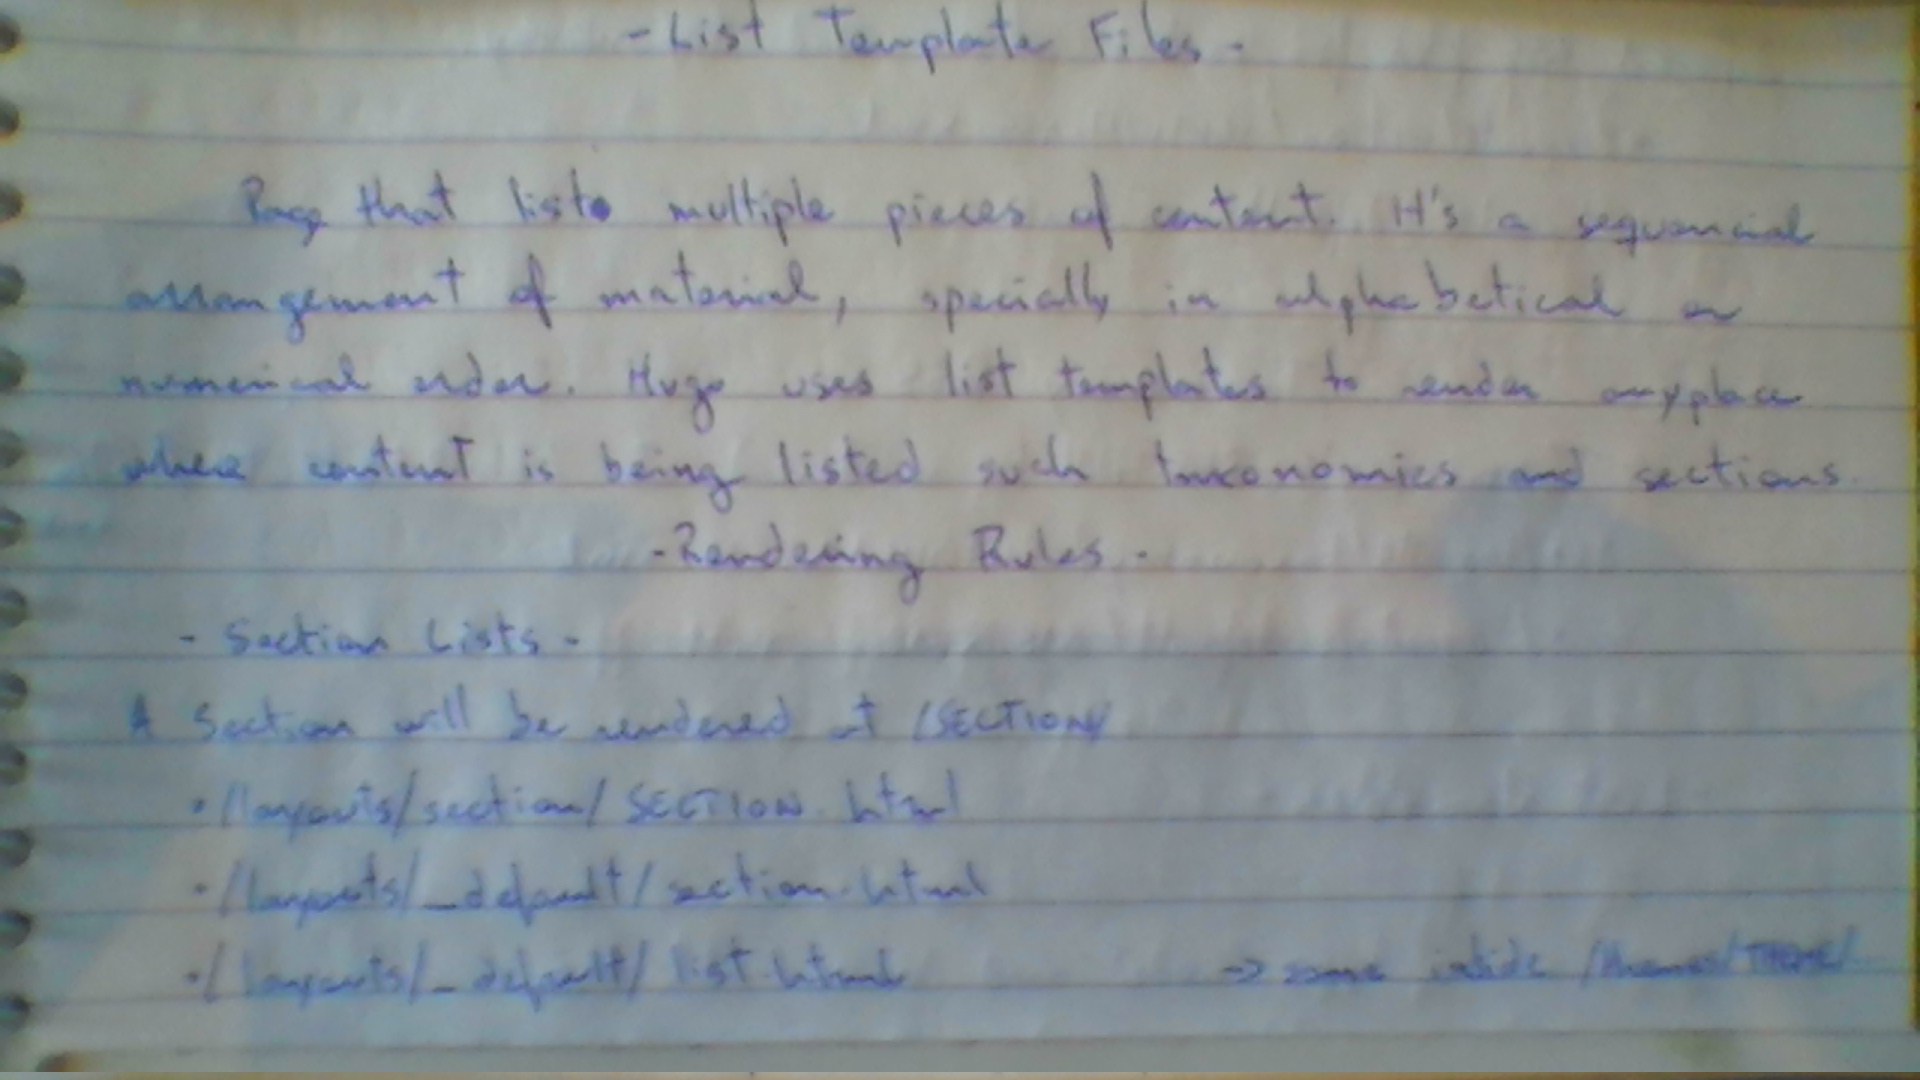 - List Template Files -
Page that lists multiple pieces of content. It's a sequencial
arrangement of material, specially in alphabetical or
numerical order. Hugo uses list templates to render anyplace
where content is being listed such taxonomies and sections.
- Rendering Rules -
- Section Lists -
A Section will be rendered at /SECTION/
• /layouts/section/SECTION.html
• /layouts/_default/section.html
• /layouts/_default/list.html → same inside /themes/THEME/